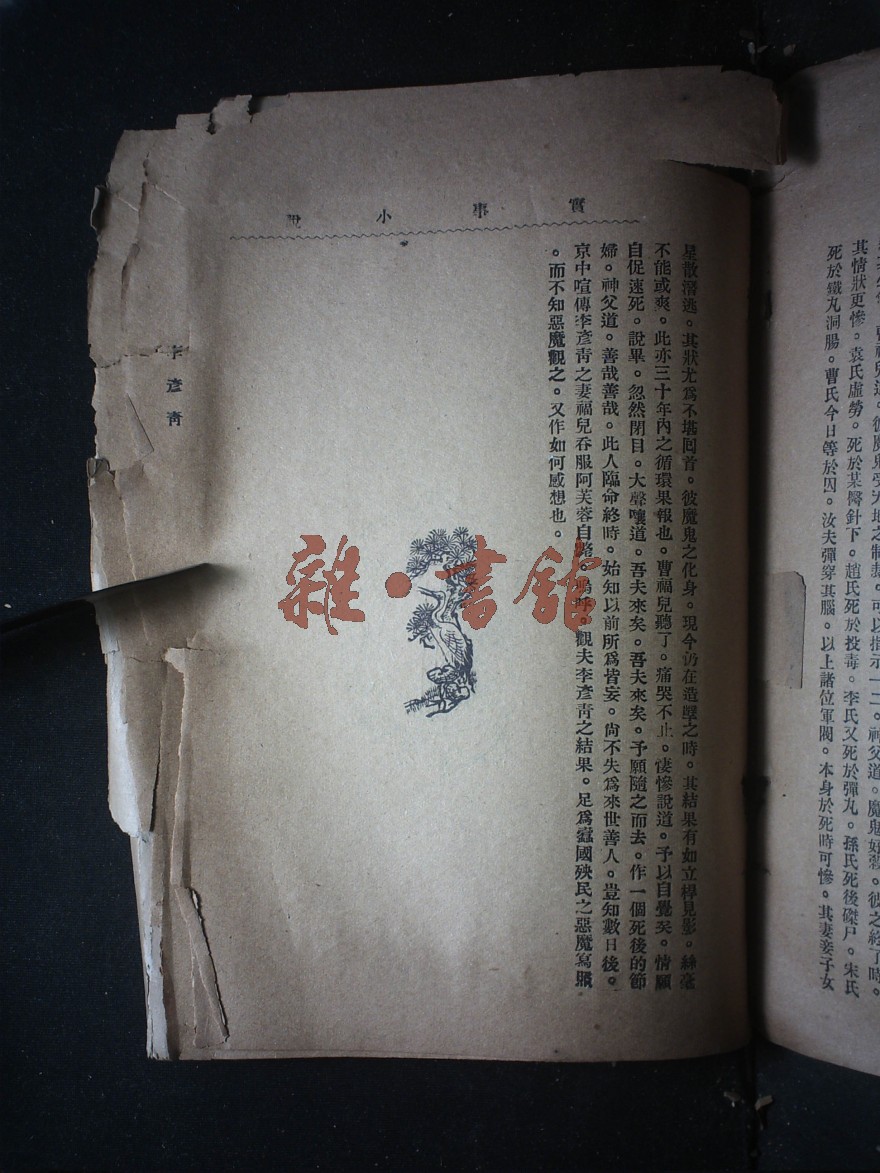 其情狀更慘。袁氏虛勞。死於某醫針下。趙氏死於投毒。李氏又死於彈丸。孫氏死後磔尸。宋氏
死於鐵丸洞腸。曹氏今日等於囚。汝夫彈穿其腦。以上諸位軍閥。本身於死時可慘。其妻妾子女
實事小說
星散潛逃。其狀尤爲不堪回首。彼魔鬼之化身。現今仍在造孽之時。其結果有如立桿見影。絲毫
不能或爽。此亦三十年內之循環果報也。曹福兒聽了。痛哭不止。悽慘說道。予以自覺矣。情願
自促速死。說畢。忽然閉目。大聲嚷道。吾夫來矣。吾夫來矣。予願隨之而去。作一個死後的節
婦。神父道。善哉善哉。此人臨命終時。始知以前所爲皆妄。尙不失爲來世善人。豈知數日後。
京中喧傳李彥靑之妻福兒吞服阿芙蓉自。觀夫李彥靑之結果。足爲蠧國殃民之惡魔寫照
。而不知惡魔觀之。又作如何感想也。
李彥靑
雜·書館